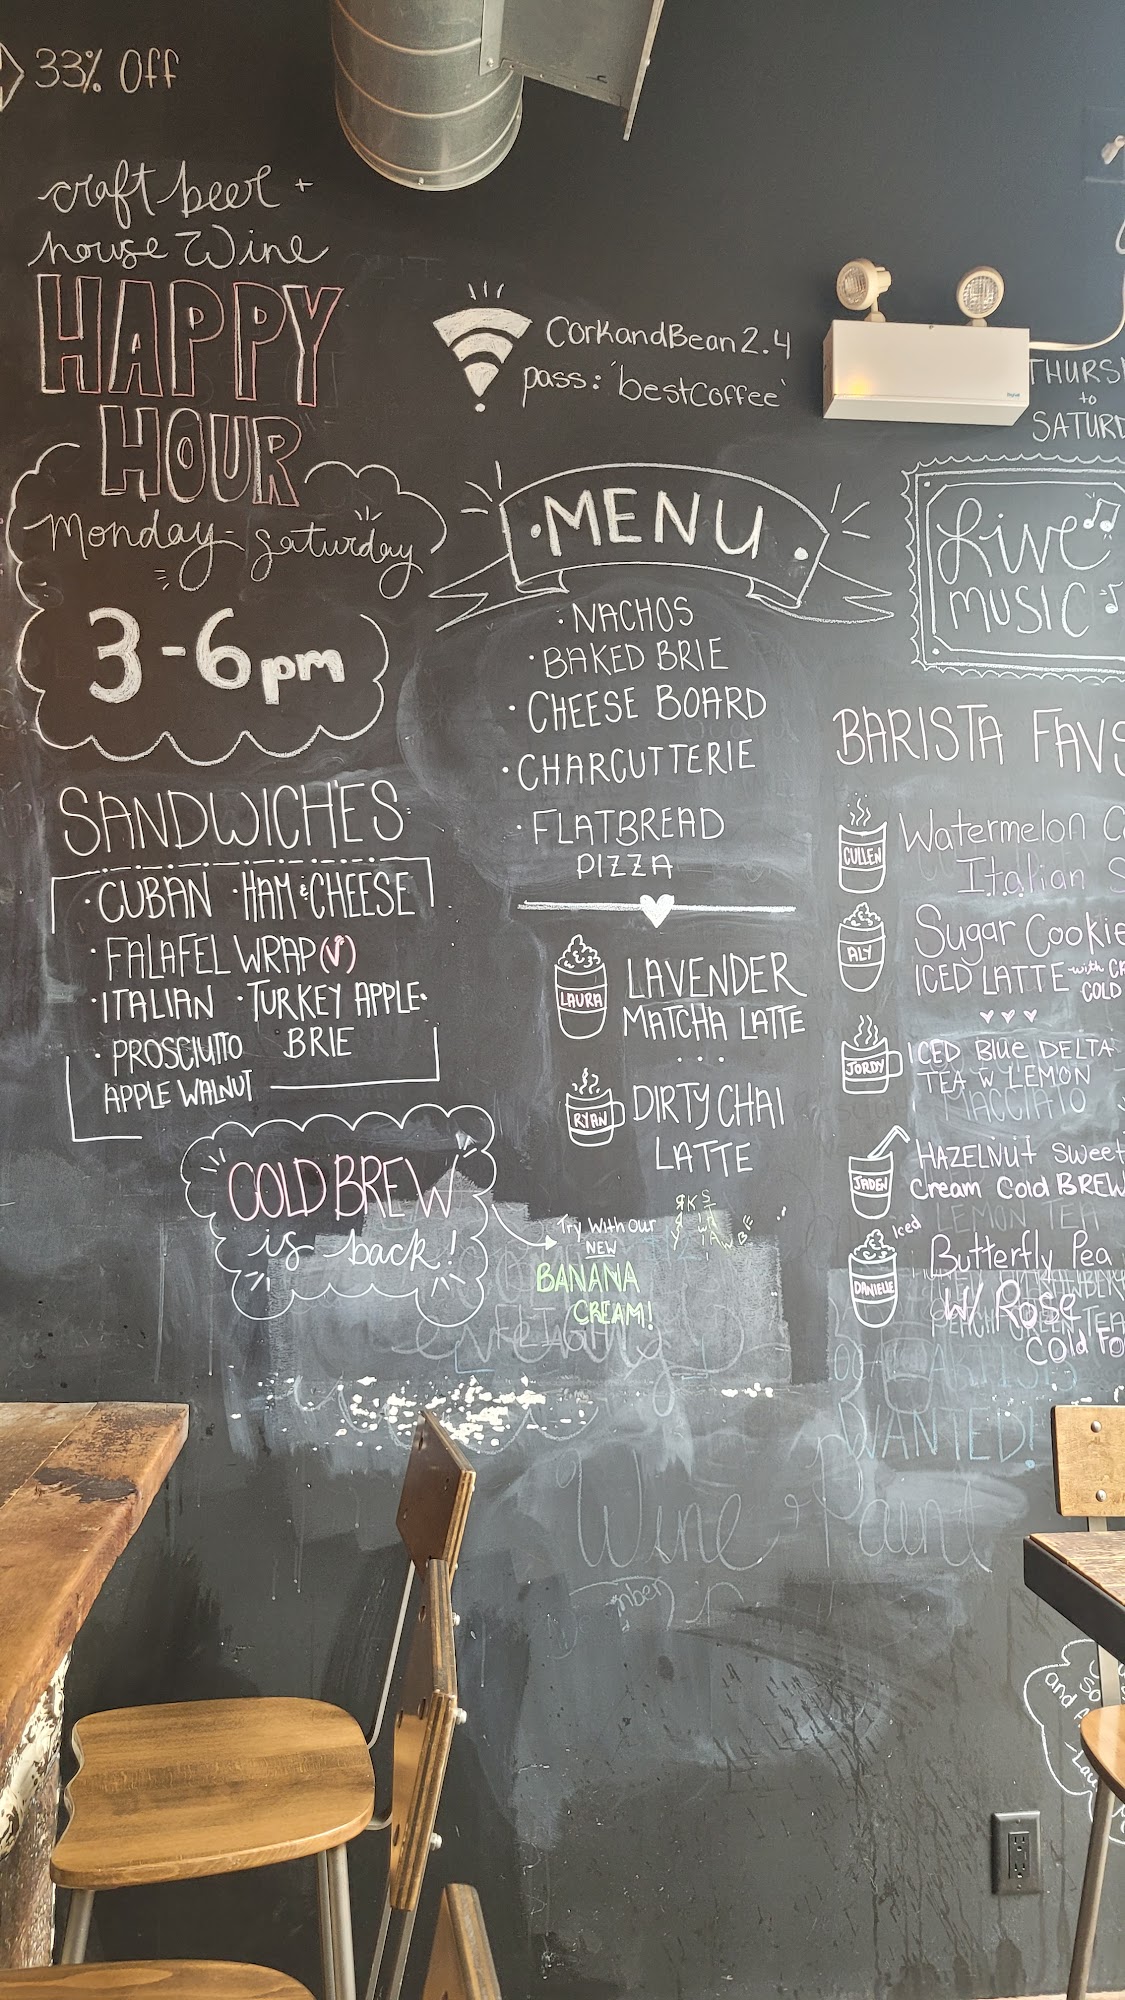 33% Off
craft beer +
house Wine
HAPPY
HOUR
Monday - Saturday
3-6pm
SANDWICHES
· CUBAN · HAM & CHEESE
· FALAFEL WRAP (V)
· ITALIAN · TURKEY APPLE
BRIE
· PROSCIUTTO
APPLE WALNUT
COLD BREW
is back!
Try With Our
NEW
BANANA
CREAM!
CorkandBean2.4
pass: 'bestCoffee'
· MENU ·
· NACHOS
· BAKED BRIE
· CHEESE BOARD
· CHARCUTTERIE
· FLATBREAD
PIZZA
LAURA
LAVENDER
MATCHA LATTE
RYAN
DIRTY CHAI
LATTE
to
Live
MUSIC
BARISTA FAVS
CULLEN
Watermelon
Italian
ALY
Sugar Cookie
ICED LATTE with
COLD
JORDY
ICED Blue DELTA
TEA W LEMON
MACCIATO
JADEN
HAZELNUT Sweet
Cream Cold BREW
LEMON TEA
DANIELLE
Iced
Butterfly Pea
W/ Rose
Cold
WANTED!
Wine & Paint